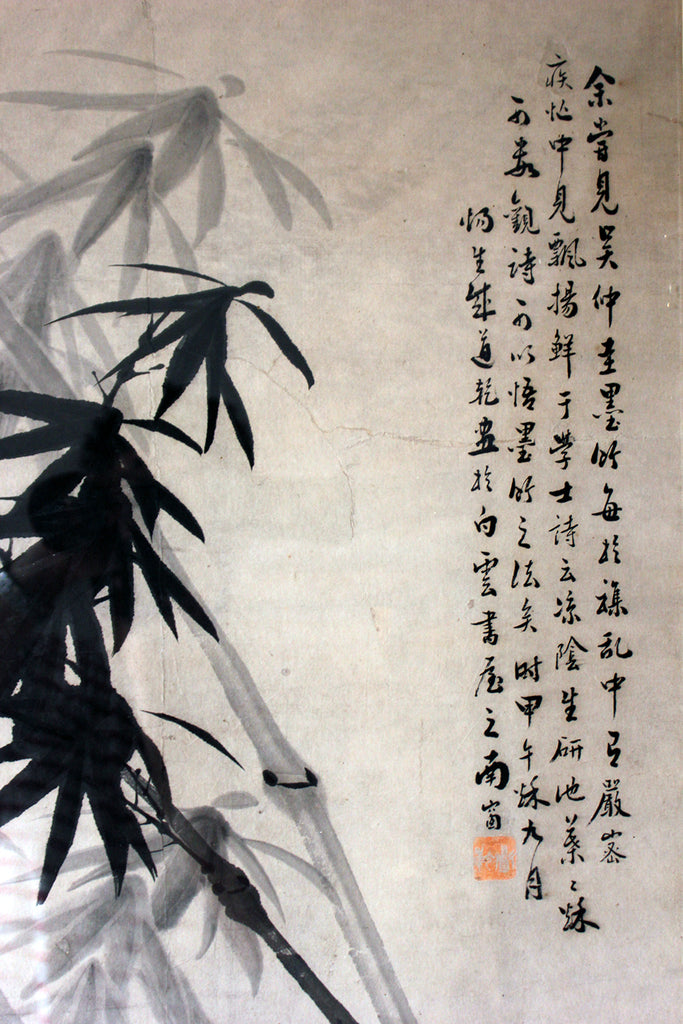 余嘗見吳仲圭墨竹每於雜乱中有嚴密
疾忙中見飄揚鮮于學士詩云凉陰生研池葉〻秌
可數觀詩可以悟墨竹之法矣時甲午秌九月
惕生成道乾畫於白雲書屋之南窗